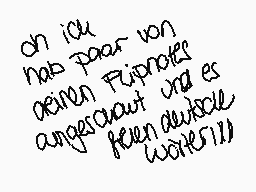 oh ick
hab paar von
deinen Flipnotes
angeschaut und es
feien deutsche
wörter!!!